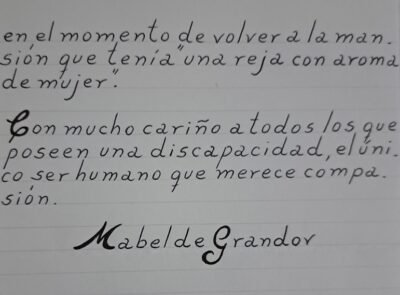 en el momento de volver a la man.
sión que tenía "una reja con aroma
de mujer".
Con mucho cariño a todos los que
poseen una discapacidad, el úni.
co ser humano que merece compa.
sión.
Mabel de Grandov